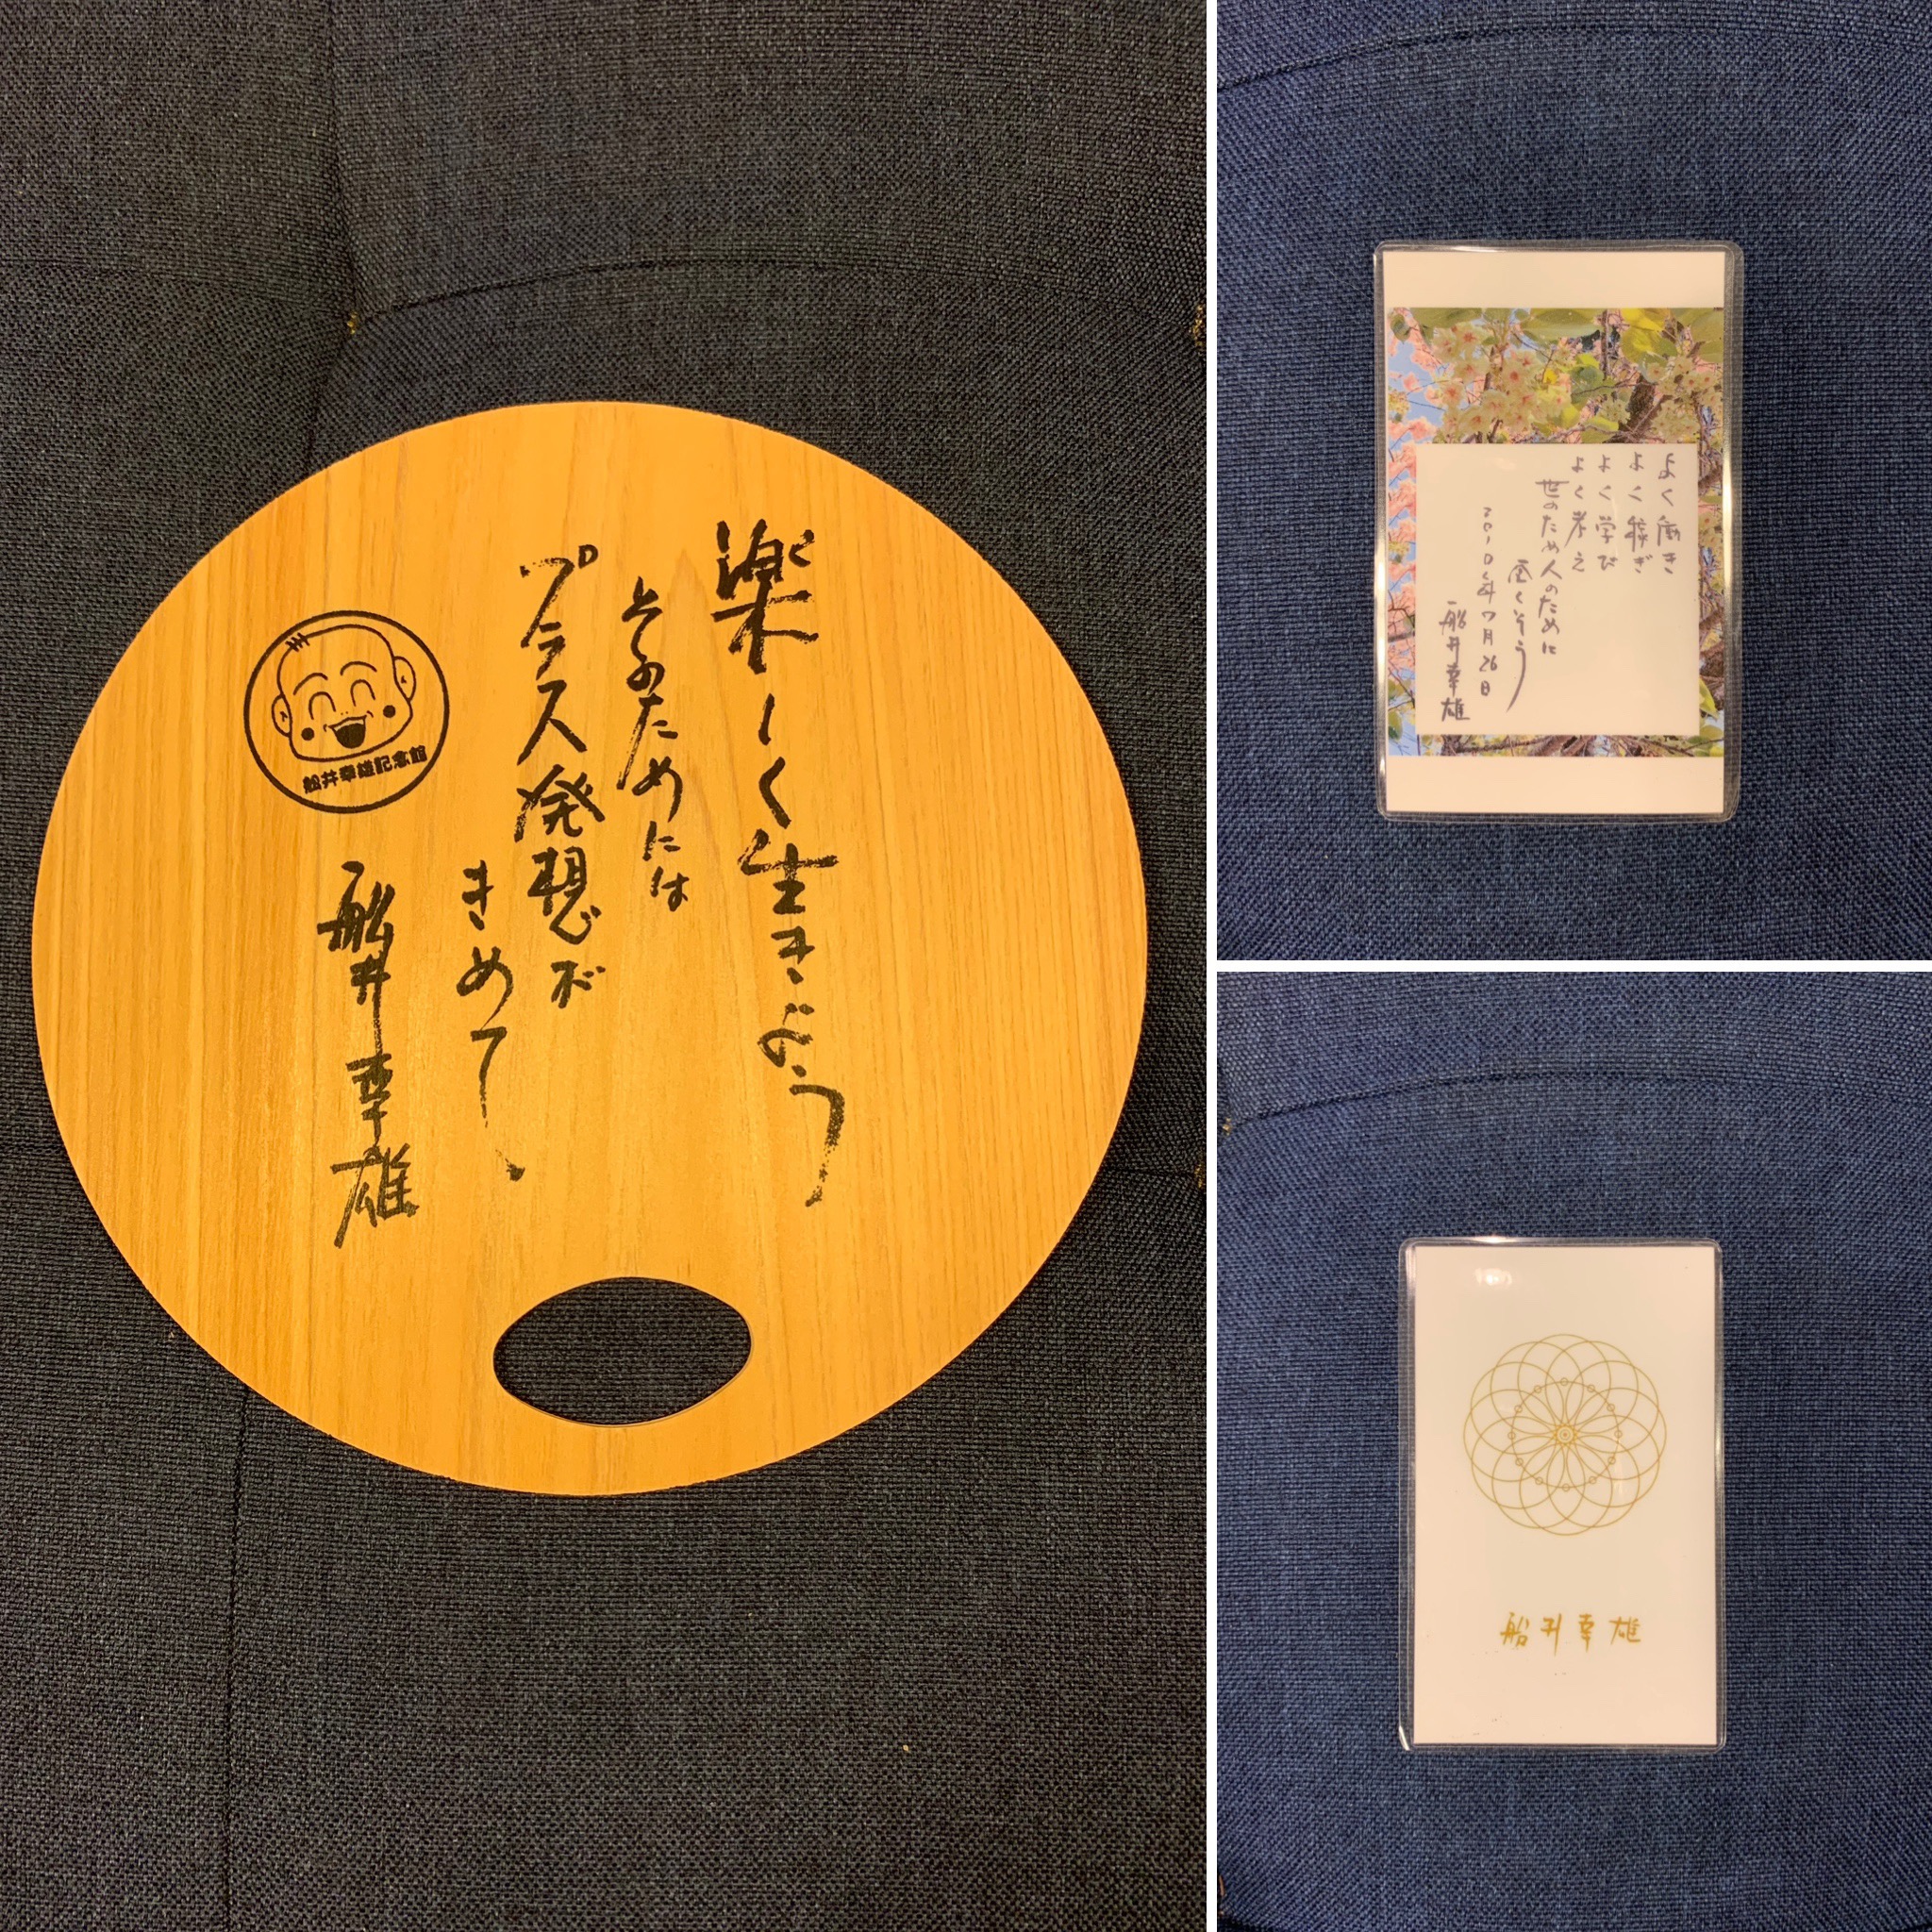 楽しく生きよう
そのためには
プラス発想が
きめて、
船井幸雄
船井幸雄記念館
よく働き
よく稼ぎ
よく学び
よく考え
世のため人のために
尽くそう
2010年7月26日
船井幸雄
船井幸雄